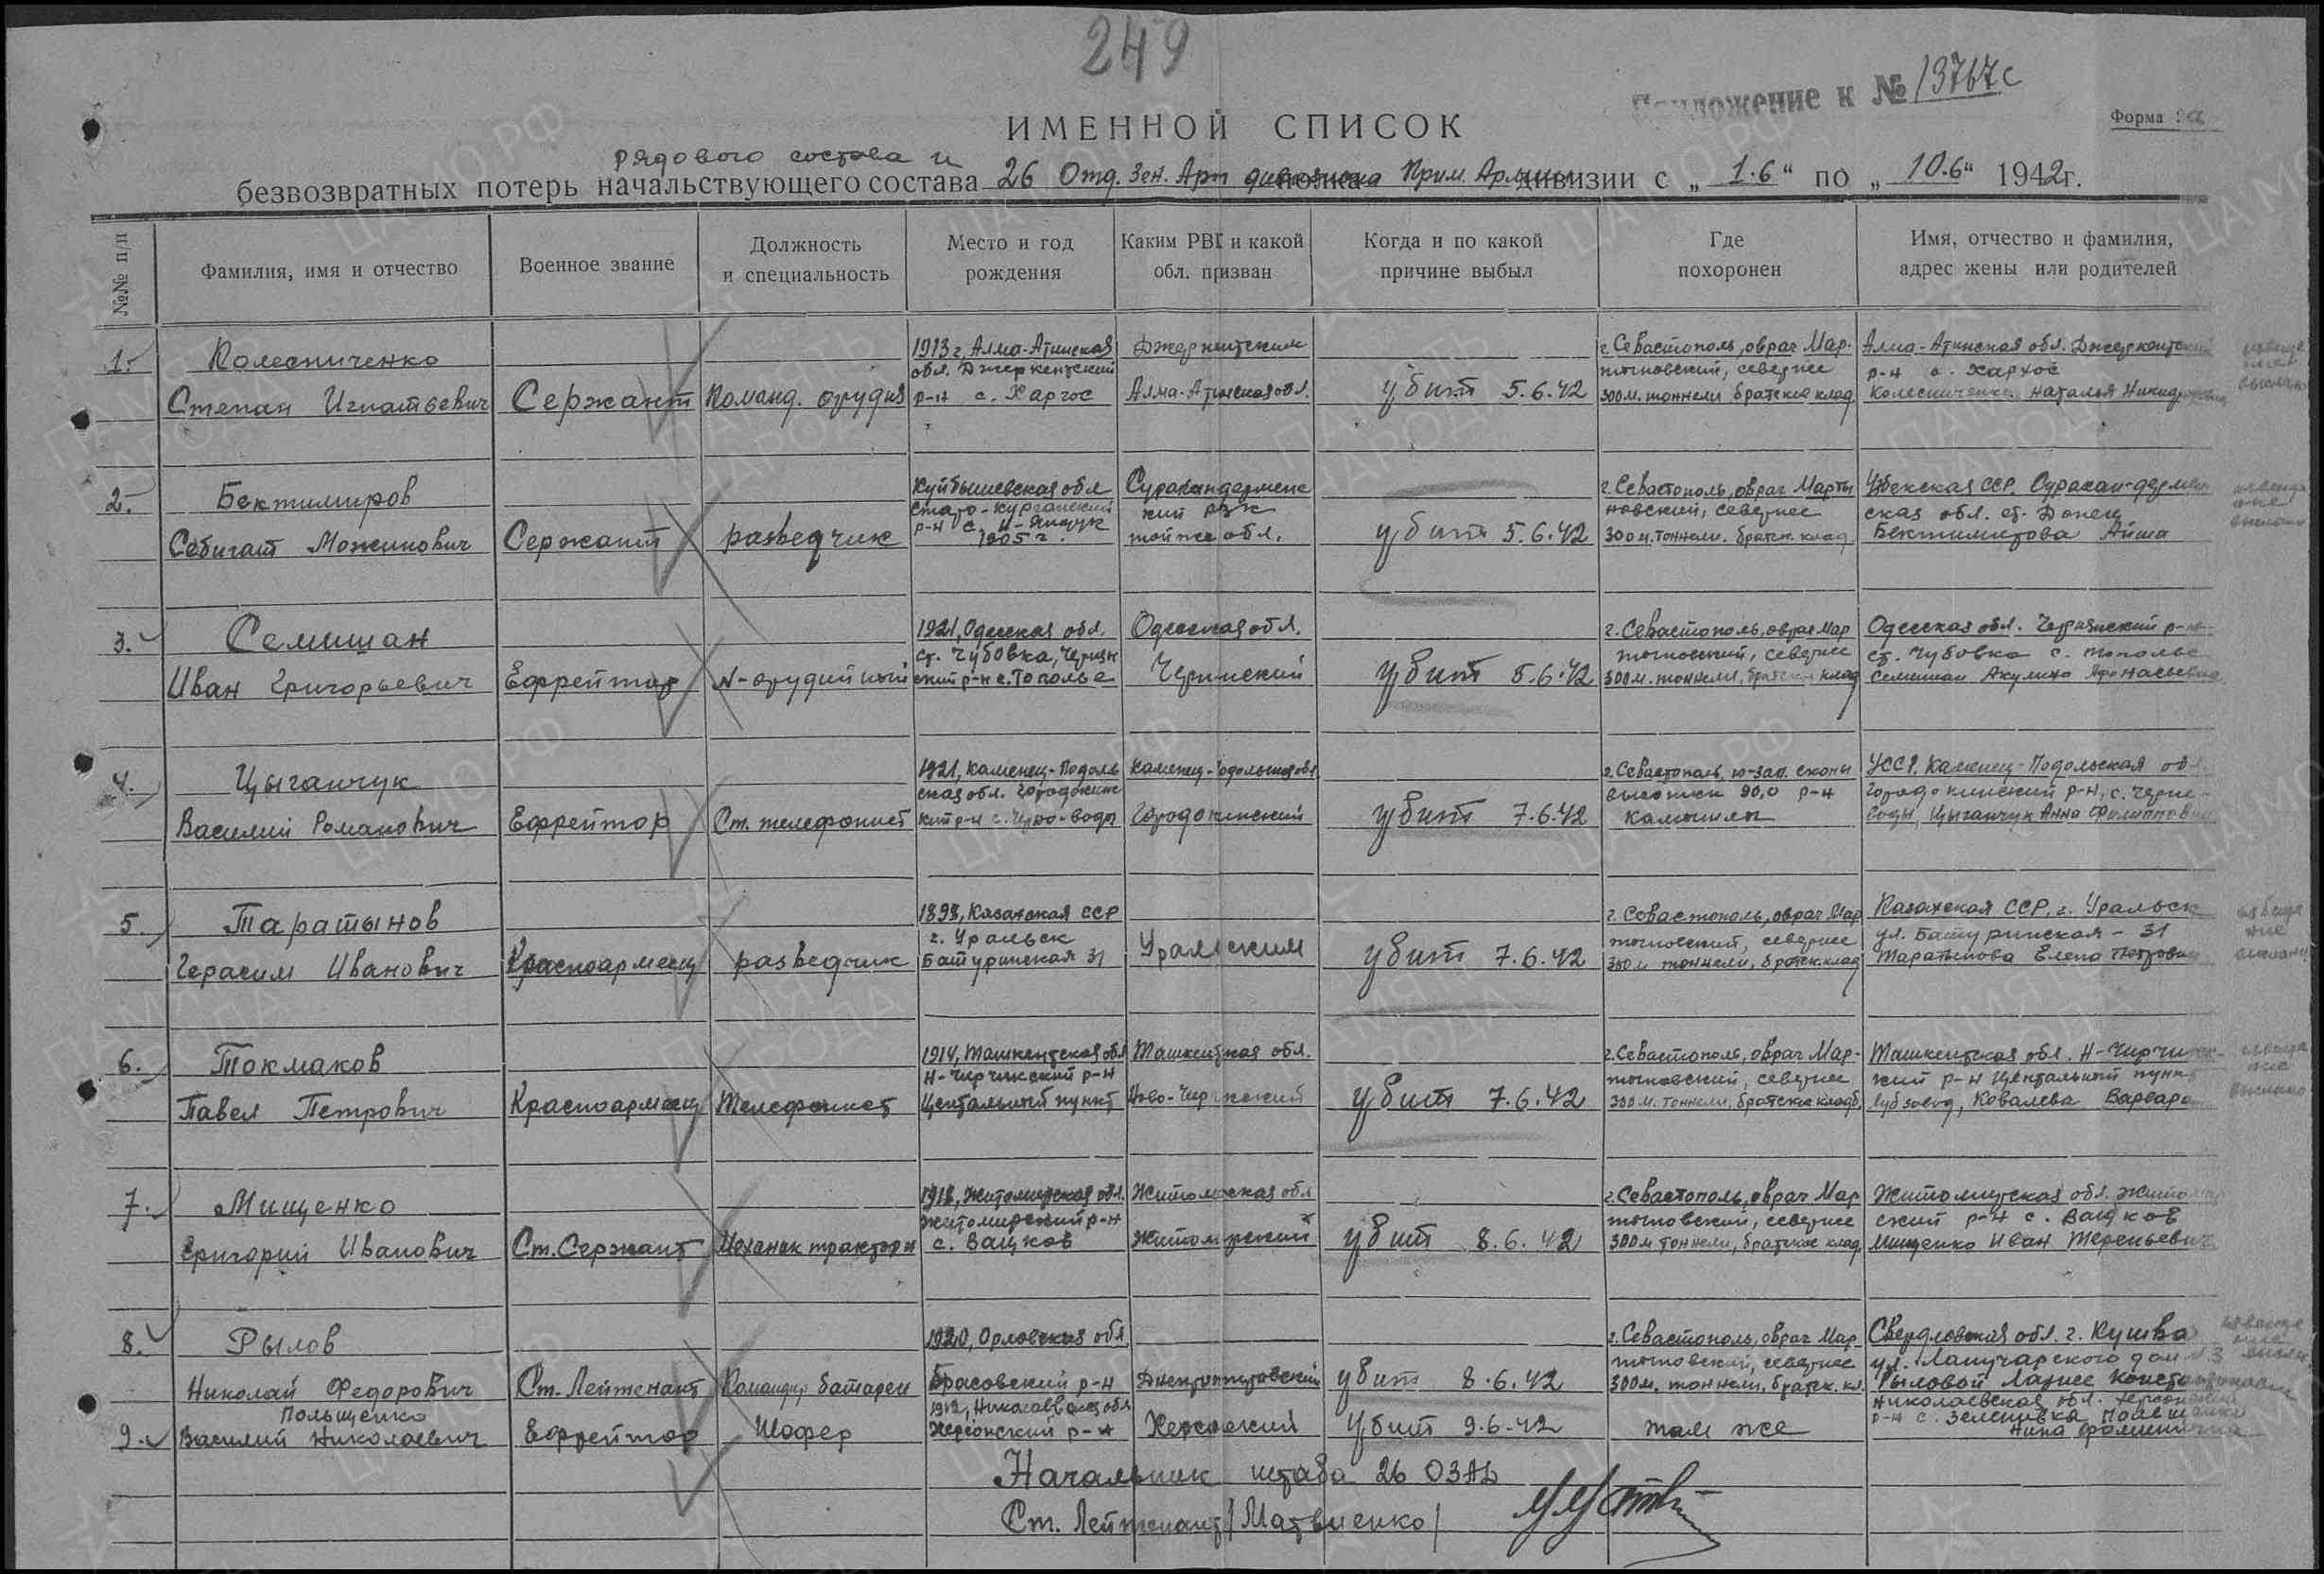 249
Приложение к № 13767с
Форма 2а
ИМЕННОЙ СПИСОК
рядового состава и
безвозвратных потерь начальствующего состава 26 Отд. Зен. Арт дивизиона полка Прим. Армии дивизии с „ 1.6 “ по „ 10.6 “ 1942г.
№№ п/п
Фамилия, имя и отчество
Военное звание
Должность и специальность
Место и год рождения
Каким РВК и какой обл. призван
Когда и по какой причине выбыл
Где похоронен
Имя, отчество и фамилия, адрес жены или родителей
1.
Колесниченко
Степан Игнатьевич
Сержант
Команд. орудия
1913 г, Алма-Атинская
обл. Джеркентский
р-н с. Харгос
Джеркентским
Алма-Атинская обл.
убит 5.6.42
г. Севастополь, овраг Мар-
тыновский, севернее
300 м. тоннели братское клад.
Алма-Атинская обл. Джеркентский
р-н с. Хархос
Колесниченко Наталья
извеще
ние
выслано
2.
Бектимиров
Себигат Можинович
Сержант
разведчик
Куйбышевская обл
Старо-Курганский
1905 г.
Сурхандермене
кий РВК
той же обл.
убит 5.6.42
г. Севастополь, овраг Марты
новский, севернее
300 м. тоннели. братск. клад
Узбекская ССР. Сурахан-дермен
ская обл. ст. Донец
Бектимирова Айша
3.
Семишан
Иван Григорьевич
Ефрейтор
N-орудийный
1921, Одесская обл.
ст. Чубовка, Чернян
ский р-н с. Тополье
Одесская обл.
Чернянский
убит 5.6.42
г. Севастополь, овраг Мар
тыновский, севернее
300 м. тоннели, братское клад
Одесская обл. Чернянский р-н
ст. Чубовка с. Тополье
Семишан Акулина Афонасьевна
4.
Цыганчук
Василий Романович
Ефрейтор
Ст. телефонист
1921, Каменец-Подоль
ская обл. Городокинс
кий р-н с. Черно-воды
Каменец-Подольская обл
Городокинский
убит 7.6.42
г. Севастополь, ю-зап. склоны
высотки 90,0 р-н
Камышлы
УССР. Каменец-Подольская обл.
Городокинский р-н, с. Черне-
воды, Цыганчук Анна Филипповна
5.
Таратынов
Герасим Иванович
Красноармеец
разведчик
1898, Казахская ССР
г. Уральск
Батуринская 31
Уральским
убит 7.6.42
г. Севастополь, овраг Мар
тыновский, севернее
300 м тоннели, братск клад
Казахская ССР, г. Уральск
ул. Батуринская - 31
Таратынова Елена Петровна
6.
Токмаков
Павел Петрович
Красноармеец
Телефонист
1914, Ташкентская обл
Н-Чирчикский р-н
Центальный пункт
Ташкентская обл.
Ново-Чирчикский
убит 7.6.42
г. Севастополь, овраг Мар-
тыновский, севернее
300 м. тоннели, братское кладб.
Ташкентская обл. Н-Чирчикс-
кий р-н Центальный пункт
Лубзавод, Ковалева Варвара
7.
Мищенко
Григорий Иванович
Ст. Сержант
Механик трактори
1918, Житомирская обл.
Житомирский р-н
с. Вацков
Житомирская обл
Житомирский
убит 8.6.42
г. Севастополь, овраг Мар
тыновский, севернее
300 м тоннели, братское клад.
Житомирская обл. Житомир
ский р-н с. Вацков
Мищенко Иван Тереньевич
8.
Рылов
Николай Федорович
Ст. Лейтенант
Командир батареи
1920, Орловская обл
Брасовский р-н
Днепропетровский
убит 8.6.42
г. Севастополь, овраг Мар
тыновский, севернее
300 м. тоннели. братск. кл.
Свердловская обл. г. Кушва
ул. Лапучарского дом N 3
Рыловой Ларисе
9.
Польщенко
Василий Николаевич
Ефрейтор
Шофер
1912, Николаевская обл
Херсонский р-н
Херсонский
Убит 9.6.42
там же
Николаевская обл. Херсонский
р-н с. Зеленивка Польщенко
Нина
Начальник штаба 26 ОЗАД
Ст. Лейтенант /Матвиенко/